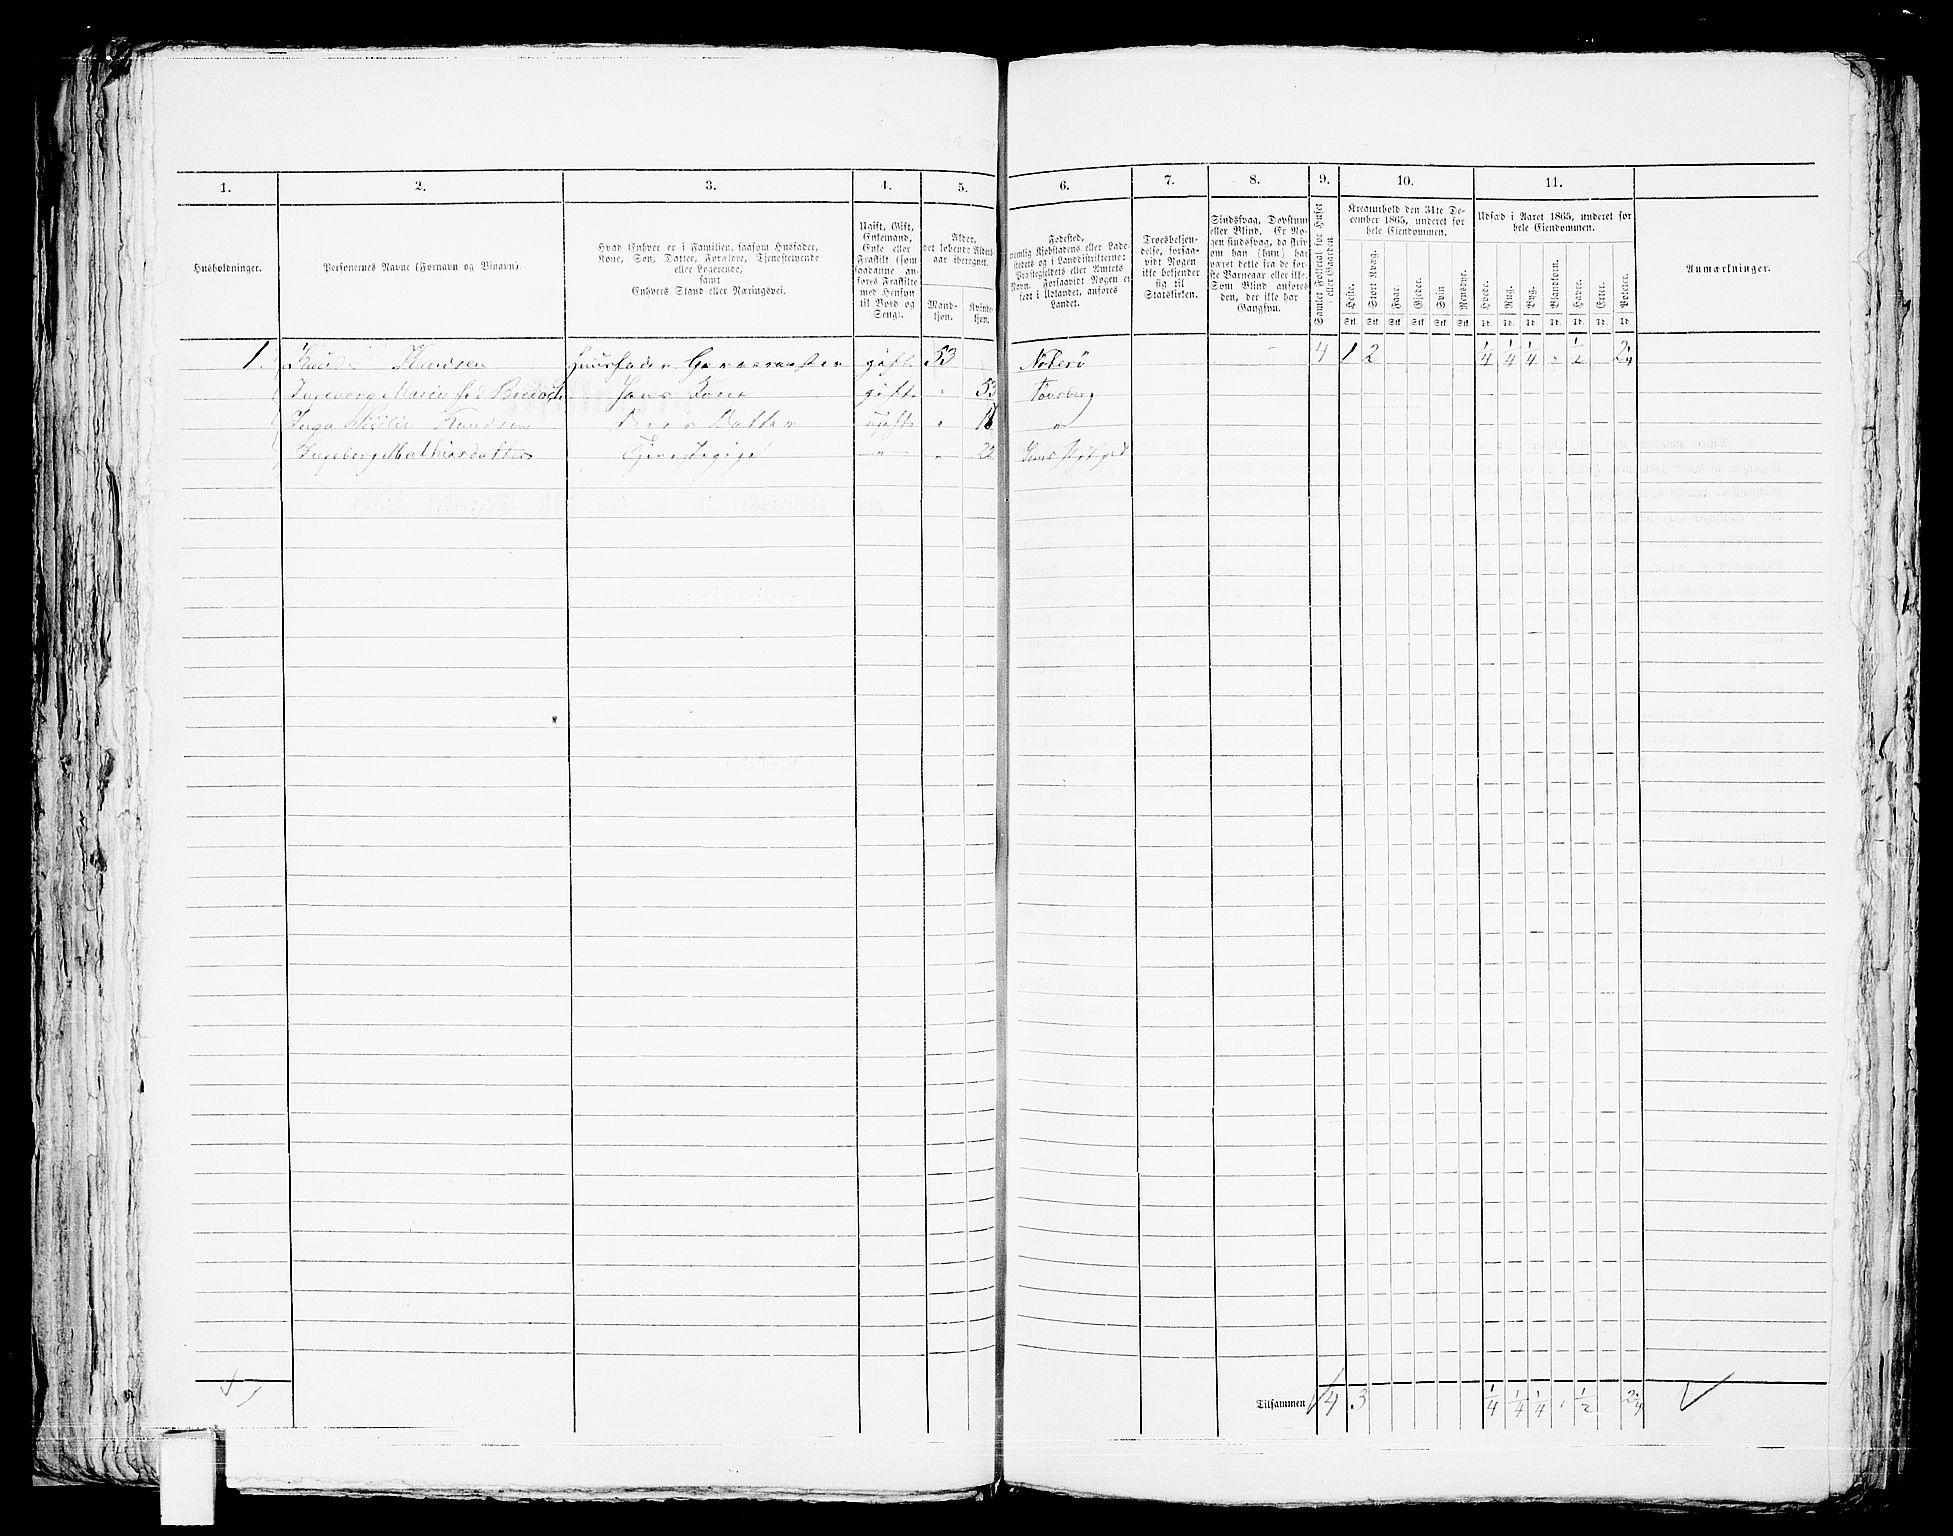 1. 2. 3. 4. 5. 6. 7. 8. 9. 10. 11.
Husholdninger.
Personernes Navne (Fornavn og Tilnavn).
Hvad Enhver er i Familien, saasom Husfader,
Kone, Søn, Datter, Forældre, Tjenestetyende
eller Logerende,
samt
Enhvers Stand eller Næringsvei.
Ugift, Gift,
Enkemand,
Enke eller
Fraskilt (som
saadanne an-
føres Fraskilte
med Hensyn
til Bord og
Seng).
Alder,
det løbende Alders-
aar iberegnet.
Mand-
kjøn.
Kvinde-
kjøn.
Fødested,
nemlig Kjøbstadens eller Lade-
stedets og i Landdistrikterne:
Præstegjeldets eller Amtets
Navn. Forsaavidt Nogen er
født i Udlandet, anføres
Landet.
Troesbekjen-
delse, forsaa-
vidt Nogen
ikke bekjender
sig til
Statskirken.
Sindssvag, Døvstum
eller Blind. Er No-
gen sindssvag, da skriv
om han (hun) har
været dette fra de før-
ste Barneaar eller ikke.
Som Blind anføres
den, der ikke har
Gangsyn.
Samlet Folketal for Huset
eller Gaarden.
Kreaturhold den 31te De-
cember 1865, underet for
hele Eiendommen.
Heste. Stort Kvæg. Faar. Gjeder. Svin Rensdyr.
Stk. Stk. Stk. Stk. Stk. Stk.
Udsæd i Aaret 1865, underet for
hele Eiendommen.
Hvede. Rug. Byg. Blandkorn. Havre. Erter. Poteter.
Td. Td. Td. Td. Td. Td. Td.
Anmærkninger.
1. Knud Knudsen Huusfader, gift 53 Nøterø 4 1 2 1/4 1/4 1/4 1/2 2 1/4
Ingeborg Marie fød Hans Kone gift 53 Tønsberg
Inga Knudsen Datter ugift "
Ingeborg Mathiasdatter Tjenestepige " 22 Sems
Tilsammen 4 3 1/4 1/4 1/4 1/2 2 1/4